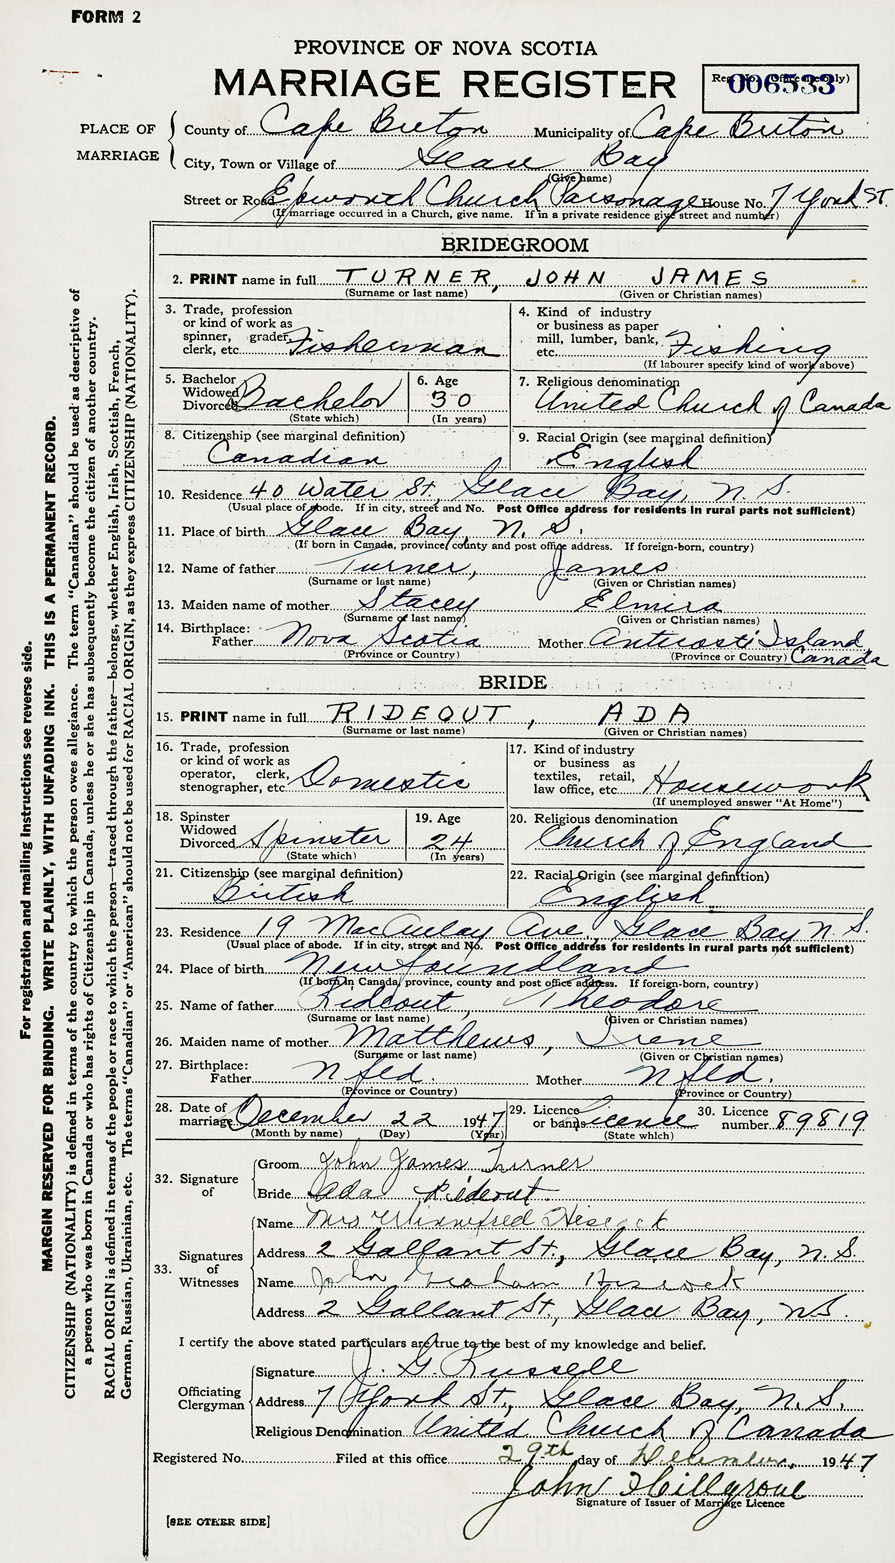 FORM 2
PROVINCE OF NOVA SCOTIA
MARRIAGE REGISTER
Reg. No. (Office use only)
006533
PLACE OF MARRIAGE
County of Cape Breton Municipality of Cape Breton
City, Town or Village of Glace Bay
(Give name)
Street or Road Epworth Church Parsonage House No. 7 York St.
(If marriage occurred in a Church, give name. If in a private residence give street and number)
BRIDEGROOM
2. PRINT name in full TURNER, JOHN JAMES
(Surname or last name) (Given or Christian names)
3. Trade, profession or kind of work as spinner, grader, clerk, etc. Fisherman
4. Kind of industry or business as paper mill, lumber, bank, etc. Fishing
(If labourer specify kind of work above)
5. Bachelor Widowed Divorced Bachelor
(State which)
6. Age 30
(In years)
7. Religious denomination
United Church of Canada
8. Citizenship (see marginal definition)
Canadian
9. Racial Origin (see marginal definition)
English
10. Residence 40 Water St., Glace Bay, N. S.
(Usual place of abode. If in city, street and No. Post Office address for residents in rural parts not sufficient)
11. Place of birth Glace Bay, N. S.
(If born in Canada, province, county and post office address. If foreign-born, country)
12. Name of father Turner, James
(Surname or last name) (Given or Christian names)
13. Maiden name of mother Stacey Elmira
(Surname or last name) (Given or Christian names)
14. Birthplace:
Father Nova Scotia Mother Anticosti Island Canada
(Province or Country) (Province or Country)
BRIDE
15. PRINT name in full RIDEOUT, ADA
(Surname or last name) (Given or Christian names)
16. Trade, profession or kind of work as operator, clerk, stenographer, etc. Domestic
17. Kind of industry or business as textiles, retail, law office, etc. Housework
(If unemployed answer "At Home")
18. Spinster Widowed Divorced Spinster
(State which)
19. Age 24
(In years)
20. Religious denomination
Church of England
21. Citizenship (see marginal definition)
British
22. Racial Origin (see marginal definition)
English
23. Residence 19 MacAulay Ave, Glace Bay N. S.
(Usual place of abode. If in city, street and No. Post Office address for residents in rural parts not sufficient)
24. Place of birth Newfoundland
(If born in Canada, province, county and post office address. If foreign-born, country)
25. Name of father Rideout, Theodore
(Surname or last name) (Given or Christian names)
26. Maiden name of mother Matthews, Irene
(Surname or last name) (Given or Christian names)
27. Birthplace:
Father Nfld. Mother Nfld.
(Province or Country) (Province or Country)
28. Date of marriage December 22 1947
(Month by name) (Day) (Year)
29. Licence or banns Licence
(State which)
30. Licence number 89819
32. Signature of
Groom John James Turner
Bride Ada Rideout.
33. Signatures of Witnesses
Name Mrs Winnifred Hiscock
Address 2 Gallant St., Glace Bay, N. S.
Name John Graham Hiscock
Address 2 Gallant St., Glace Bay, NS.
I certify the above stated particulars are true to the best of my knowledge and belief.
Officiating Clergyman
Signature J. G. Russell
Address 7 York St., Glace Bay, N. S.
Religious Denomination United Church of Canada
Registered No. Filed at this office 29th day of December, 1947
John Hillgrove
Signature of Issuer of Marriage Licence
[SEE OTHER SIDE]
For registration and mailing instructions see reverse side.
MARGIN RESERVED FOR BINDING. WRITE PLAINLY, WITH UNFADING INK. THIS IS A PERMANENT RECORD.
CITIZENSHIP (NATIONALITY) is defined in terms of the country to which the person owes allegiance. The term "Canadian" should be used as descriptive of
a person who was born in Canada or who has rights of Citizenship in Canada, unless he or she has subsequently become the citizen of another country.
RACIAL ORIGIN is defined in terms of the people or race to which the person—traced through the father—belongs, whether English, Irish, Scottish, French,
German, Russian, Ukrainian, etc. The terms "Canadian" or "American" should not be used for RACIAL ORIGIN, as they express CITIZENSHIP (NATIONALITY).